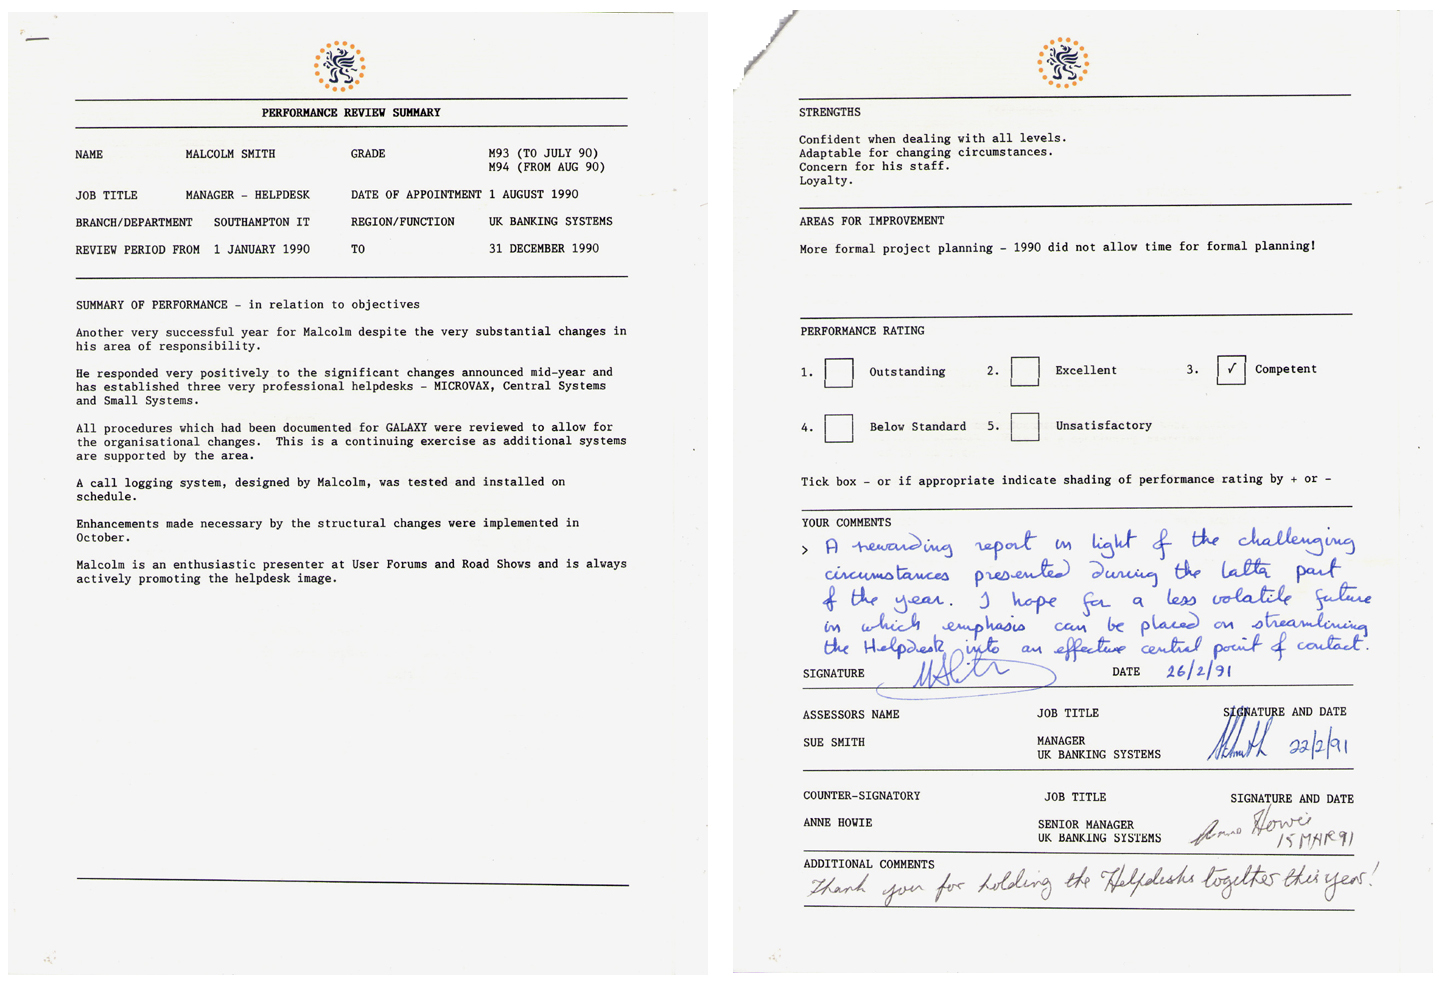 PERFORMANCE REVIEW SUMMARY
NAME MALCOLM SMITH GRADE M93 (TO JULY 90)
M94 (FROM AUG 90)
JOB TITLE MANAGER - HELPDESK DATE OF APPOINTMENT 1 AUGUST 1990
BRANCH/DEPARTMENT SOUTHAMPTON IT REGION/FUNCTION UK BANKING SYSTEMS
REVIEW PERIOD FROM 1 JANUARY 1990 TO 31 DECEMBER 1990
SUMMARY OF PERFORMANCE - in relation to objectives
Another very successful year for Malcolm despite the very substantial changes in
his area of responsibility.
He responded very positively to the significant changes announced mid-year and
has established three very professional helpdesks - MICROVAX, Central Systems
and Small Systems.
All procedures which had been documented for GALAXY were reviewed to allow for
the organisational changes. This is a continuing exercise as additional systems
are supported by the area.
A call logging system, designed by Malcolm, was tested and installed on
schedule.
Enhancements made necessary by the structural changes were implemented in
October.
Malcolm is an enthusiastic presenter at User Forums and Road Shows and is always
actively promoting the helpdesk image.
STRENGTHS
Confident when dealing with all levels.
Adaptable for changing circumstances.
Concern for his staff.
Loyalty.
AREAS FOR IMPROVEMENT
More formal project planning - 1990 did not allow time for formal planning!
PERFORMANCE RATING
1. Outstanding 2. Excellent 3. ✓ Competent
4. Below Standard 5. Unsatisfactory
Tick box - or if appropriate indicate shading of performance rating by + or -
YOUR COMMENTS
> A rewarding report in light of the challenging
circumstances presented during the latter part
of the year. I hope for a less volatile future
in which emphasis can be placed on streamlining
the Helpdesk into an effective central point of contact.
SIGNATURE MSmith DATE 26/2/91
ASSESSORS NAME JOB TITLE SIGNATURE AND DATE
SUE SMITH MANAGER 22/2/91
UK BANKING SYSTEMS
COUNTER-SIGNATORY JOB TITLE SIGNATURE AND DATE
ANNE HOWIE SENIOR MANAGER Anne Howie
UK BANKING SYSTEMS 15 MAR 91
ADDITIONAL COMMENTS
Thank you for holding the Helpdesks together this year!